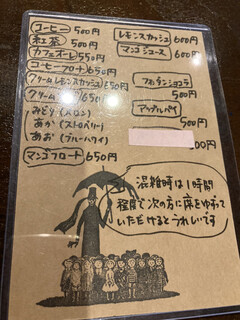 コーヒー 500円
紅茶 500円
カフェオーレ 550円
コーヒーフロート 650円
クリームレモンスカッシュ 650円
クリーム 650円
みどり(メロン)
あか(ストロベリー)
あお(ブルーハワイ)
マンゴフロート 650円
レモンスカッシュ 600円
マンゴジュース 600円
フォンダンショコラ
500円
アップルパイ
500円
00円
混雑時は1時間
程度で次の方に席をゆずって
いただけるとうれしいです